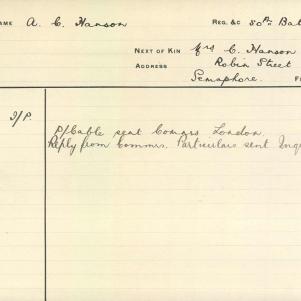 NAME A. C. Hanson REG. &c 50th Bat
NEXT OF KIN Mrs C. Hanson
ADDRESS Robin Street
Semaphore. F
I/P. P/Cable sent Comms London.
Reply from Commrs. Particulars sent Inq